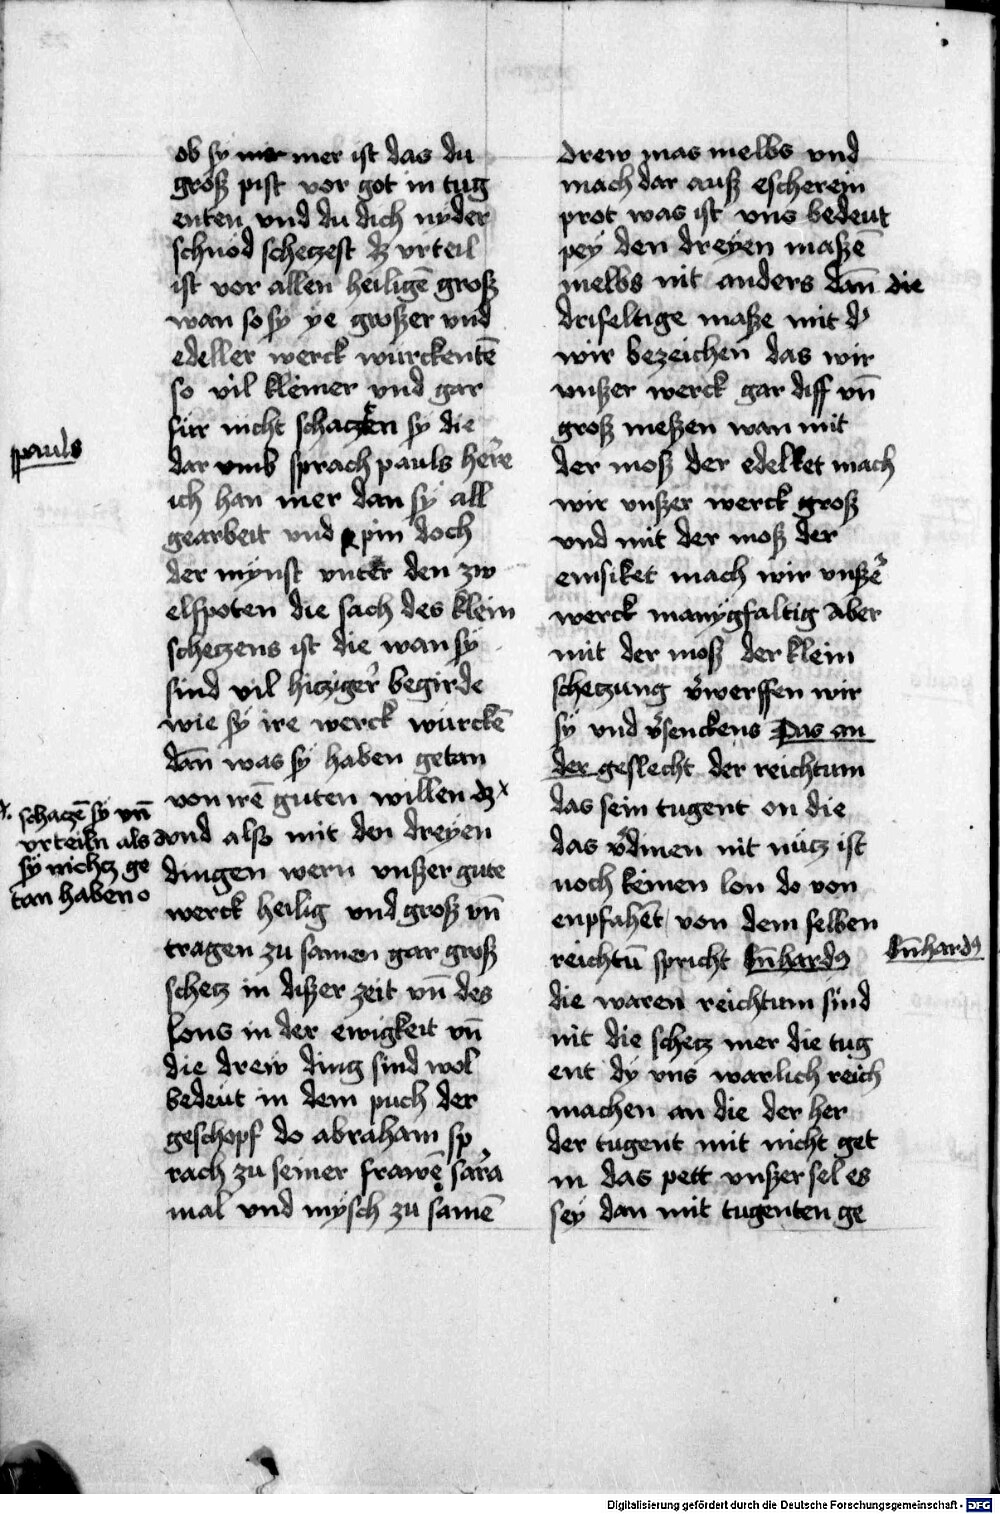 ob sy mer mer ist das du
groß pist vor got in tug
enten vnd du dich nyder
schnöd schetzest dz vrteil
ist vor allen heiligē groß
wan so sy ye großer vnd
edeller werck wurckentē
so vil kleiner vnd gar
für nicht schatztēn sy die
dar vmb sprach pauls her̄e
ich han mer dan sy all
gearbeit vnd pin doch
der mynst vnter den zw
elfpoten die sach des klein
schetzens ist die wan sy
sind vil hitziger begirde
wie sy ire werck würckē
dān was sy haben getan
von irē guten willen dz x
vnd also mit den dreyen
dingen wern vnßer gute
werck heilig vnd groß vn̄
tragen zu samen gar groß
schetz in dißer zeit vn̄ des
lons in der ewigkeit vn̄
die drew ding sind wol
bedeut in dem puch der
geschopf do abraham sp
rach zu seiner frawē sarra
mal vnd mysch zu samē
pauls
x. schatzē sy vn̄
vrteiln als ob
sy nichtz ge
tan haben o
drew mas melbs vnd
mach dar auß escherein
prot was ist vns bedeut
pey den dreyen maßē
melbs nit anders dān die
drifeltige maße mit d'
wir bezeichen das wir
vnßer werck gar diff vn̄
groß meßen wan mit
der moß der edelket mach
wir vnßer werck groß
vnd mit der moß der
emsiket mach wir vnßer
werck manygfaltig Aber
mit der moß der klein
schetzung v'werffen wir
sy vnd v'senckens Das an
der geslecht der reichtum
das sein tugent on die
das v'dinen nit nütz ist
noch keinen lon do von
enpfahēt von dem selben
reichtū spricht Bn̄hardꝰ
die waren reichtum sind
nit die schetz mer die tug
ent dy vns warlich reich
machen an die der her
der tugent mit nicht get
in das pett vnßer sel es
sey dan mit tugenten ge
Bn̄hardꝰ
Digitalisierung gefördert durch die Deutsche Forschungsgemeinschaft - DFG